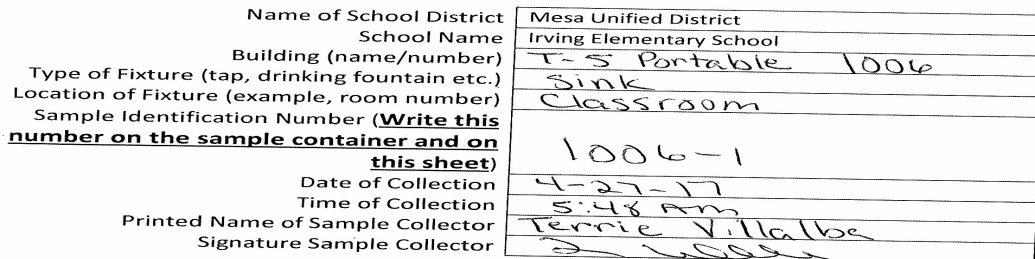 Name of School District Mesa Unified District
School Name Irving Elementary School
Building (name/number) T-5 Portable 1006
Type of Fixture (tap, drinking fountain etc.) Sink
Location of Fixture (example, room number) Classroom
Sample Identification Number (Write this
number on the sample container and on
this sheet) 1006-1
Date of Collection 4-27-17
Time of Collection 5:48 AM
Printed Name of Sample Collector Terrie Villalba
Signature Sample Collector